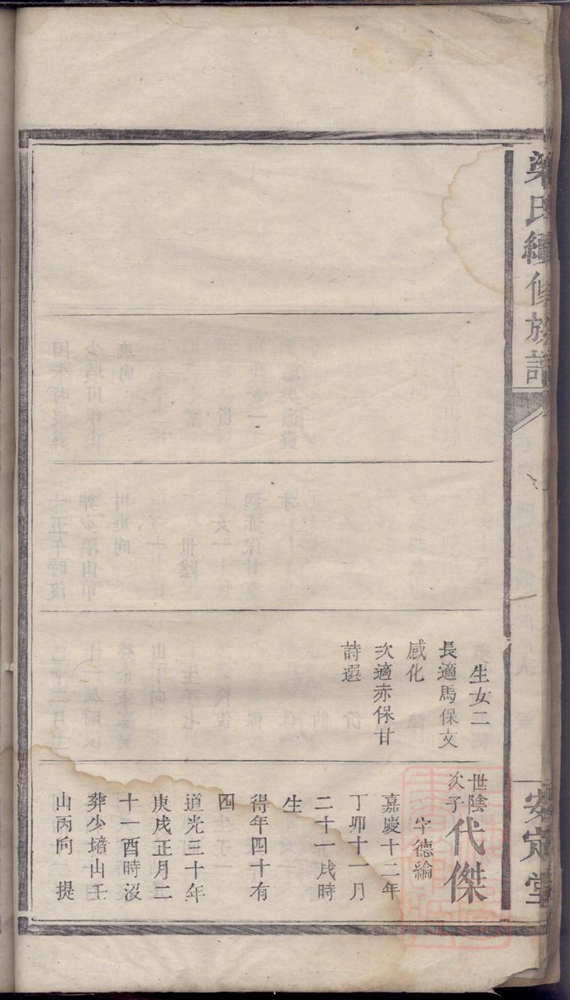 梁氏續修族譜
安定堂
生女二
長適馬保文
感化
次適赤保甘
詩選
世陰
次子
代傑
字德綸
嘉慶十二年
丁卯十一月
二十一戌時
生
得年四十有
四
道光三十年
庚戌正月二
十一酉時沒
葬少培山壬
山丙向 提